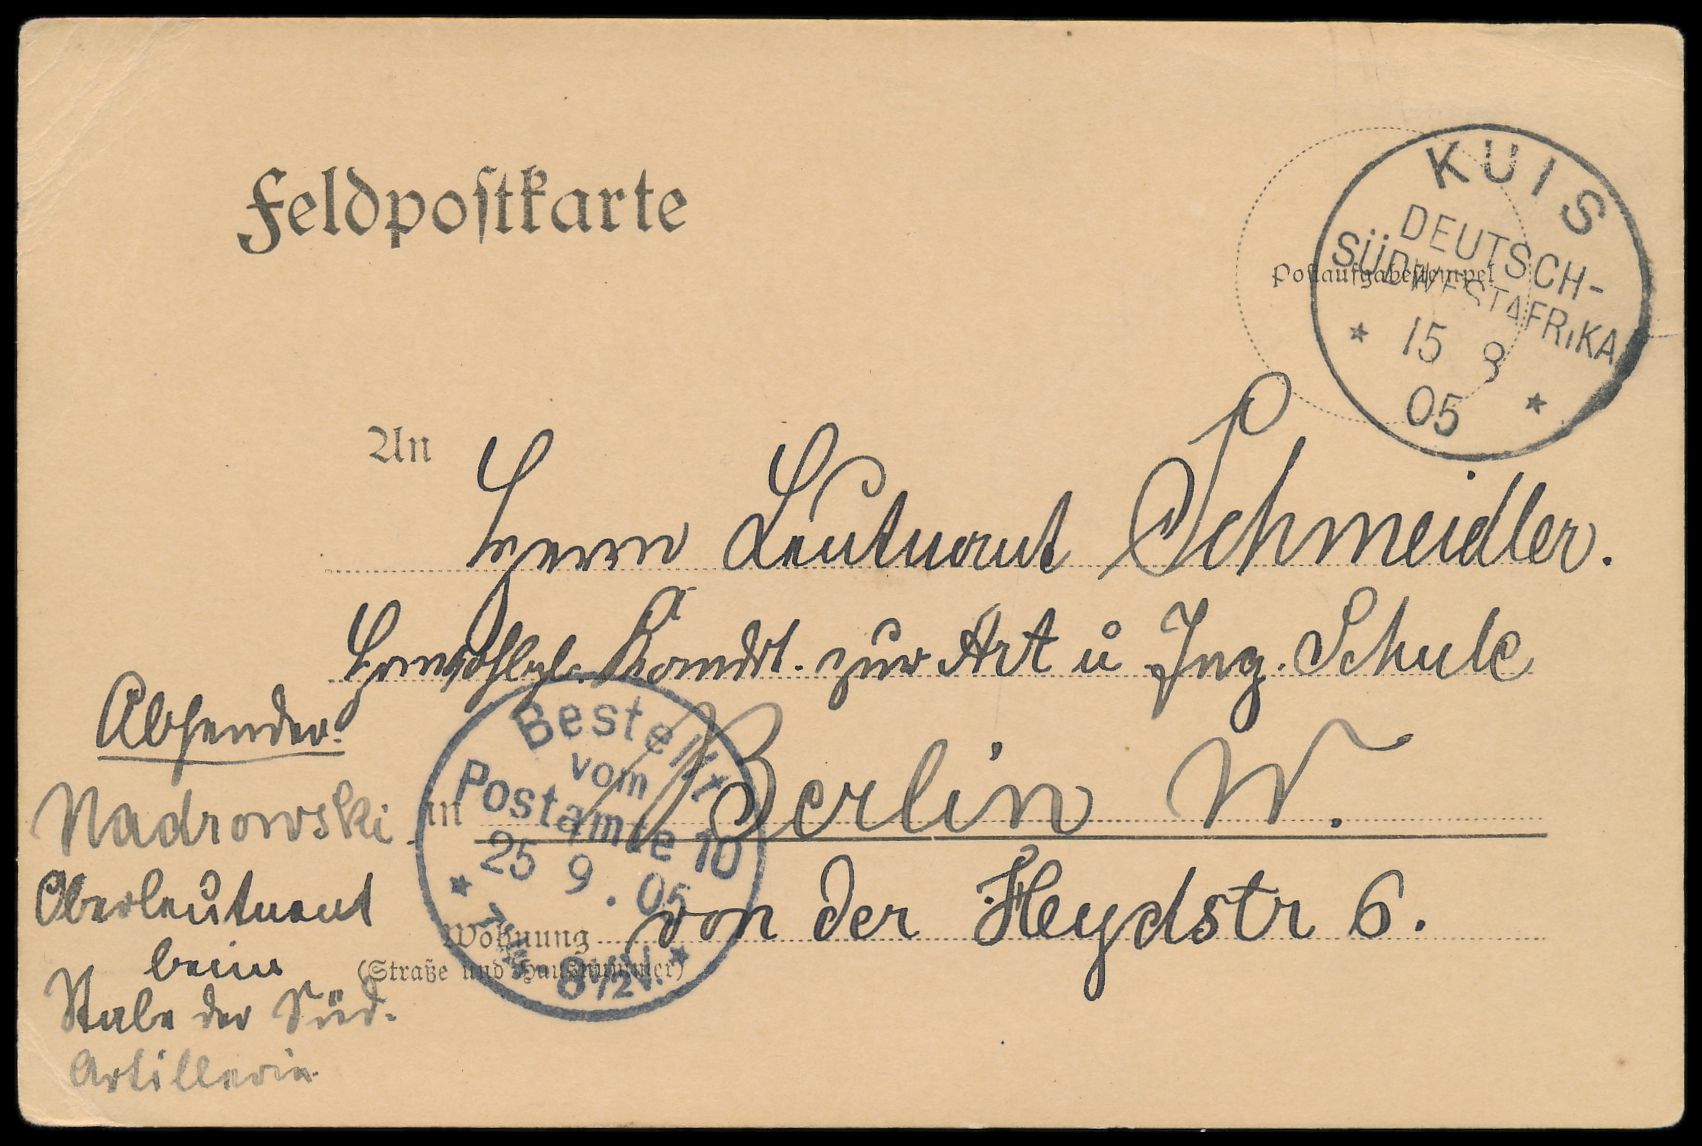 Feldpostkarte
KUIS
DEUTSCH-
SÜDWESTAFRIKA
15 8
05
Postaufgabestempel
An
Herrn Leutnant Schmeidler.
Kandt. zur Art u Ing. Schule
Absender:
Bestellt
vom
Postamte 10
25 9. 05
8 1/2 V.
Nadrowski
Oberleutnant
beim
Stabe der Süd-
Artillerie
in Berlin W.
Wohnung von der Heydstr 6.
(Straße und Hausnummer)